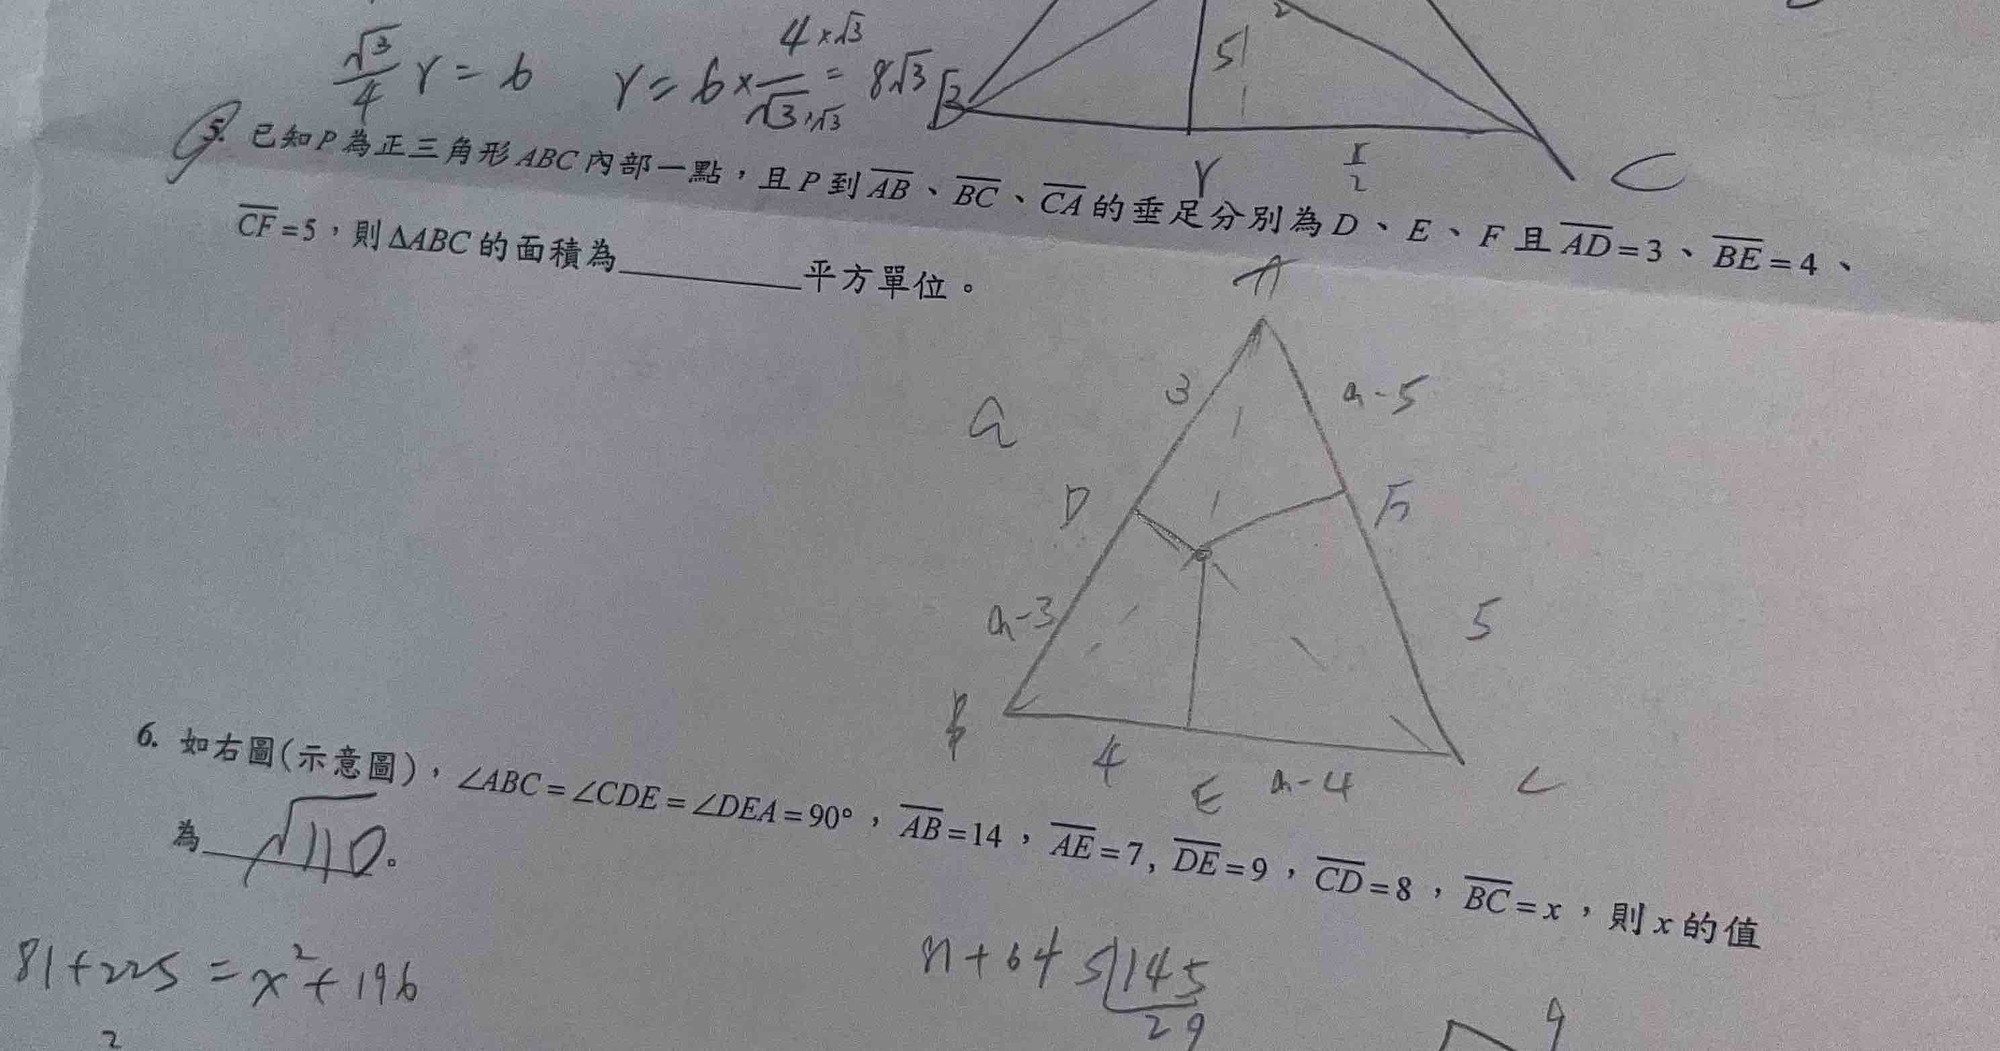 √3/4 r = 6 r = 6 × 4×√3/√3×√3 = 8√3
B 51 2
r r/2 C
5. 已知P為正三角形ABC內部一點,且P到AB、BC、CA的垂足分別為D、E、F且AD=3、BE=4、
CF=5,則ΔABC的面積為________平方單位。
A
3 a-5
a
D F
a-3 5
B 4 E a-4 C
6. 如右圖(示意圖),∠ABC=∠CDE=∠DEA=90°,AB=14,AE=7, DE=9,CD=8,BC=x,則x的值
為 √110。
81+225 = x²+196
+64 5|145
29
2 9